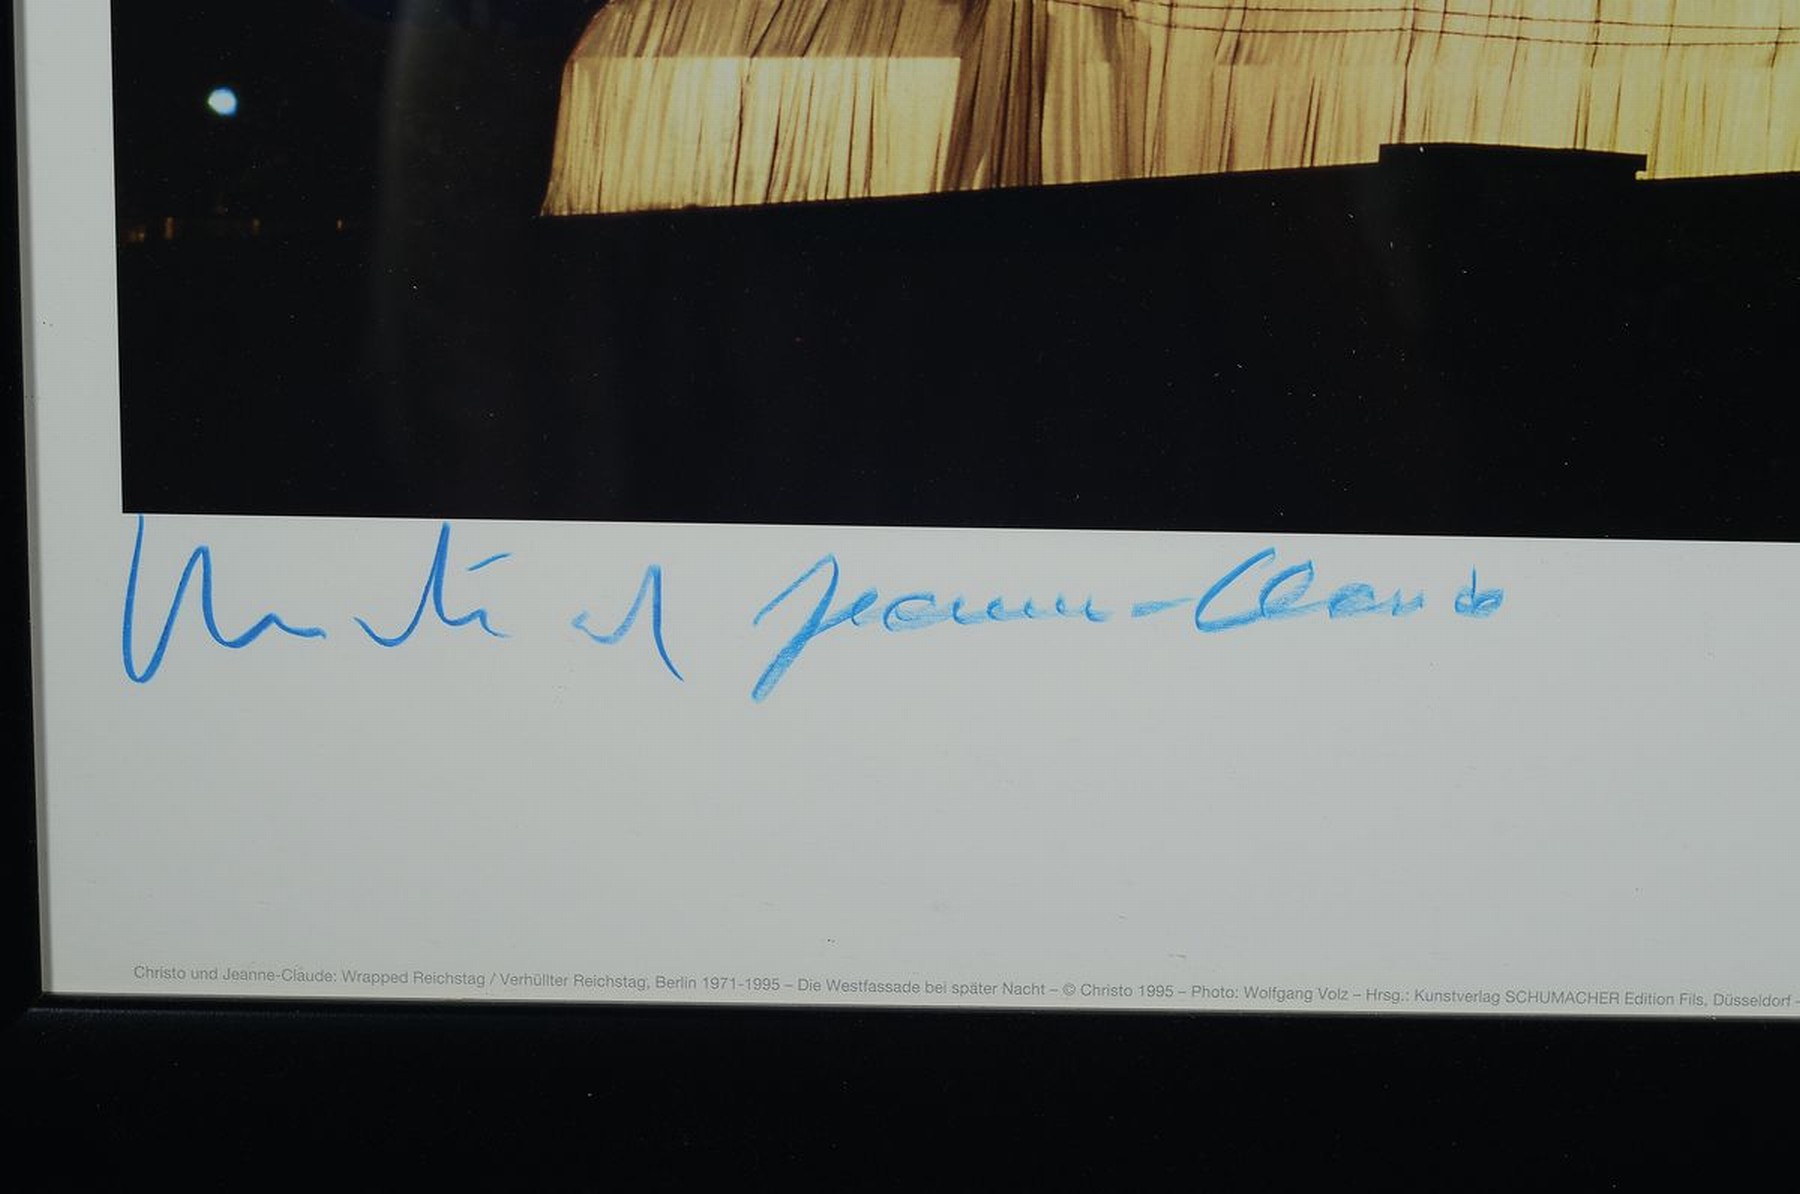 Christo und Jeanne-Claude
Christo und Jeanne-Claude: Wrapped Reichstag / Verhüllter Reichstag, Berlin 1971-1995 – Die Westfassade bei später Nacht – © Christo 1995 – Photo: Wolfgang Volz – Hrsg.: Kunstverlag SCHUMACHER Edition Fils, Düsseldorf –